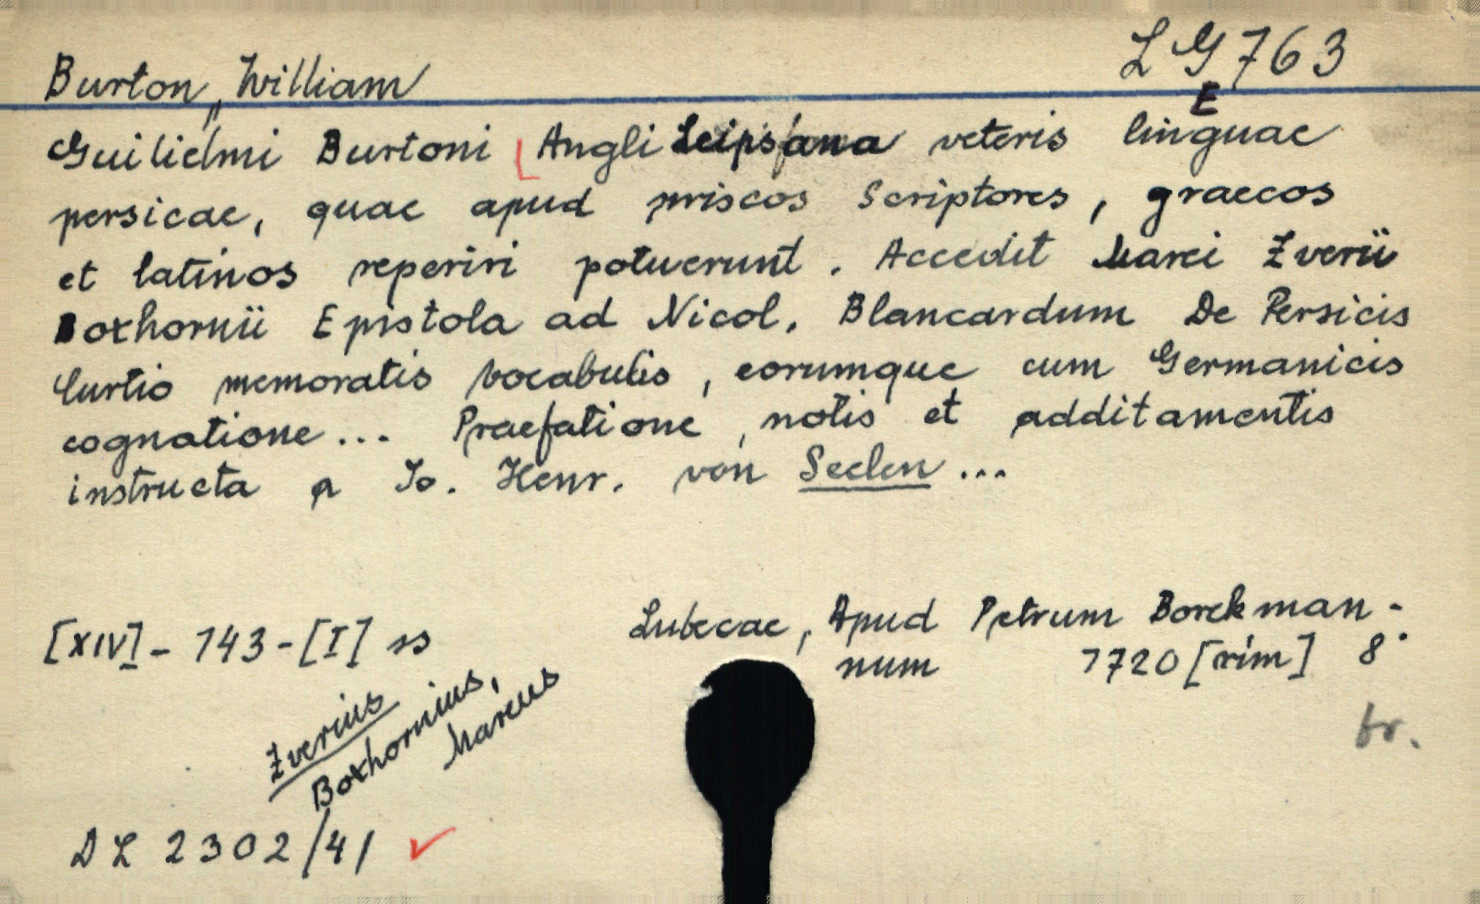 Burton, William
LG 763
E
Guilielmi Burtoni Angli Leipsana veteris linguae
persicae, quae apud priscos Scriptores, graecos
et latinos reperiri potuerunt. Accedit Marci Zverii
Boxhornii Epistola ad Nicol. Blancardum De Persicis
Curtio memoratis vocabulis, eorumque cum Germanicis
cognatione... Praefatione, notis et additamentis
instructa a Jo. Henr. von Seelen...
Lubecae, Apud Petrum Borckman-
num 1720 [rim] 8°
[XIV] - 143 - [I] ss
Zverius
Boxhornius,
Marcus
br.
DL 2302/41